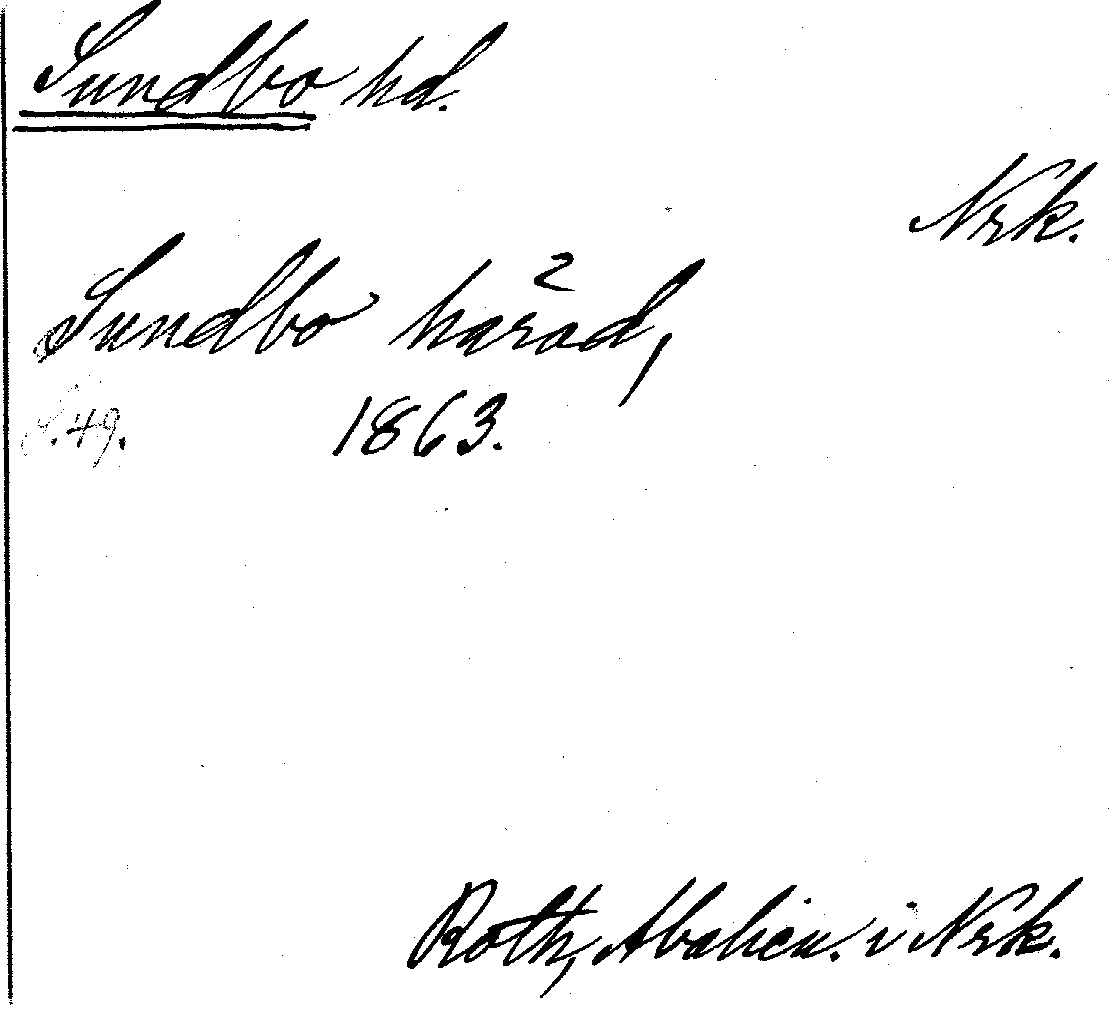 Sundbo hd.
Nrk.
Sundbo härad,
S. 49. 1863.
Roth, i Nrk.